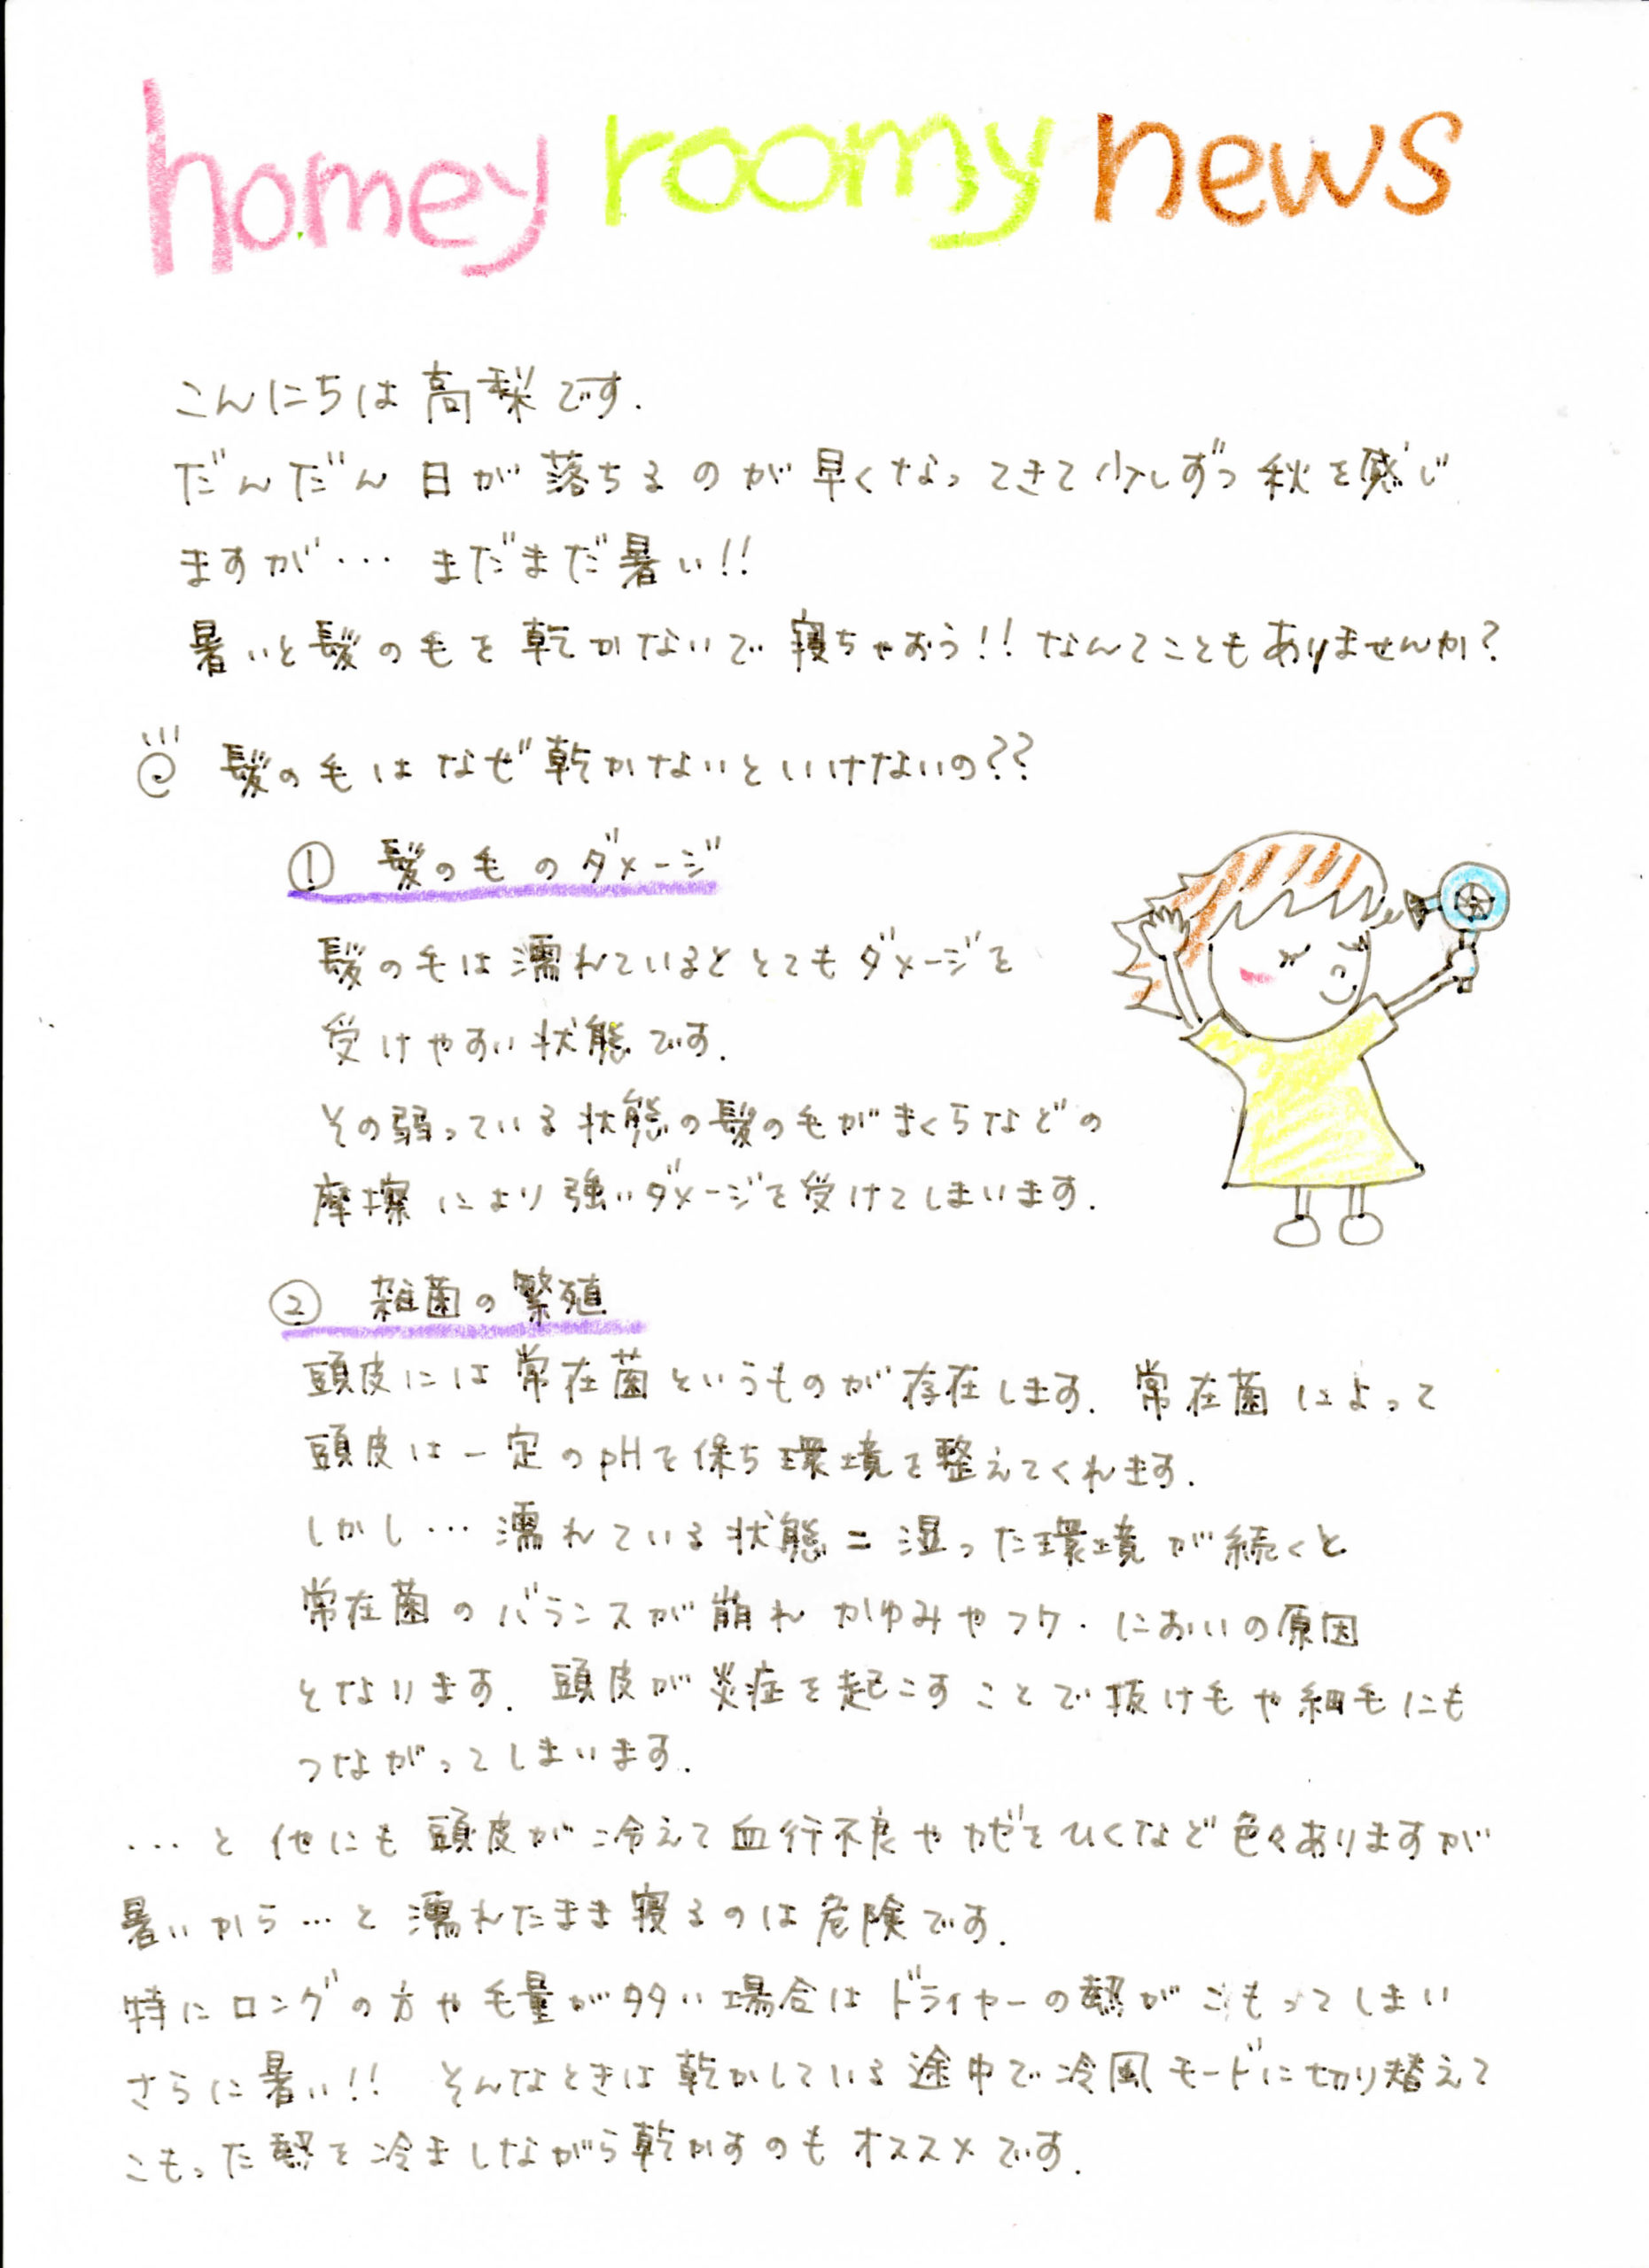 homey roomy news
こんにちは高梨です.
だんだん日が落ちるのが早くなってきて少しずつ秋を感じ
ますが… まだまだ暑い!!
暑いと髪の毛を乾かないで寝ちゃおう!! なんてこともありませんか?
髪の毛はなぜ乾かないといけないの??
① 髪の毛のダメージ
髪の毛は濡れているととてもダメージを
受けやすい状態です.
その弱っている状態の髪の毛がまくらなどの
摩擦により強いダメージを受けてしまいます.
② 雑菌の繁殖
頭皮には常在菌というものが存在します. 常在菌によって
頭皮は一定のpHを保ち環境を整えてくれます.
しかし… 濡れている状態=湿った環境が続くと
常在菌のバランスが崩れ かゆみやフケ・においの原因
となります. 頭皮が炎症を起こすことで抜け毛や細毛にも
つながってしまいます.
…と他にも頭皮が冷えて血行不良やカゼをひくなど色々ありますが
暑いから…と濡れたまま寝るのは危険です.
特にロングの方や毛量が多い場合はドライヤーの熱がこもってしまい
さらに暑い!! そんなときは乾かしている途中で冷風モードに切り替えて
こもった熱を冷ましながら乾かすのもオススメです.